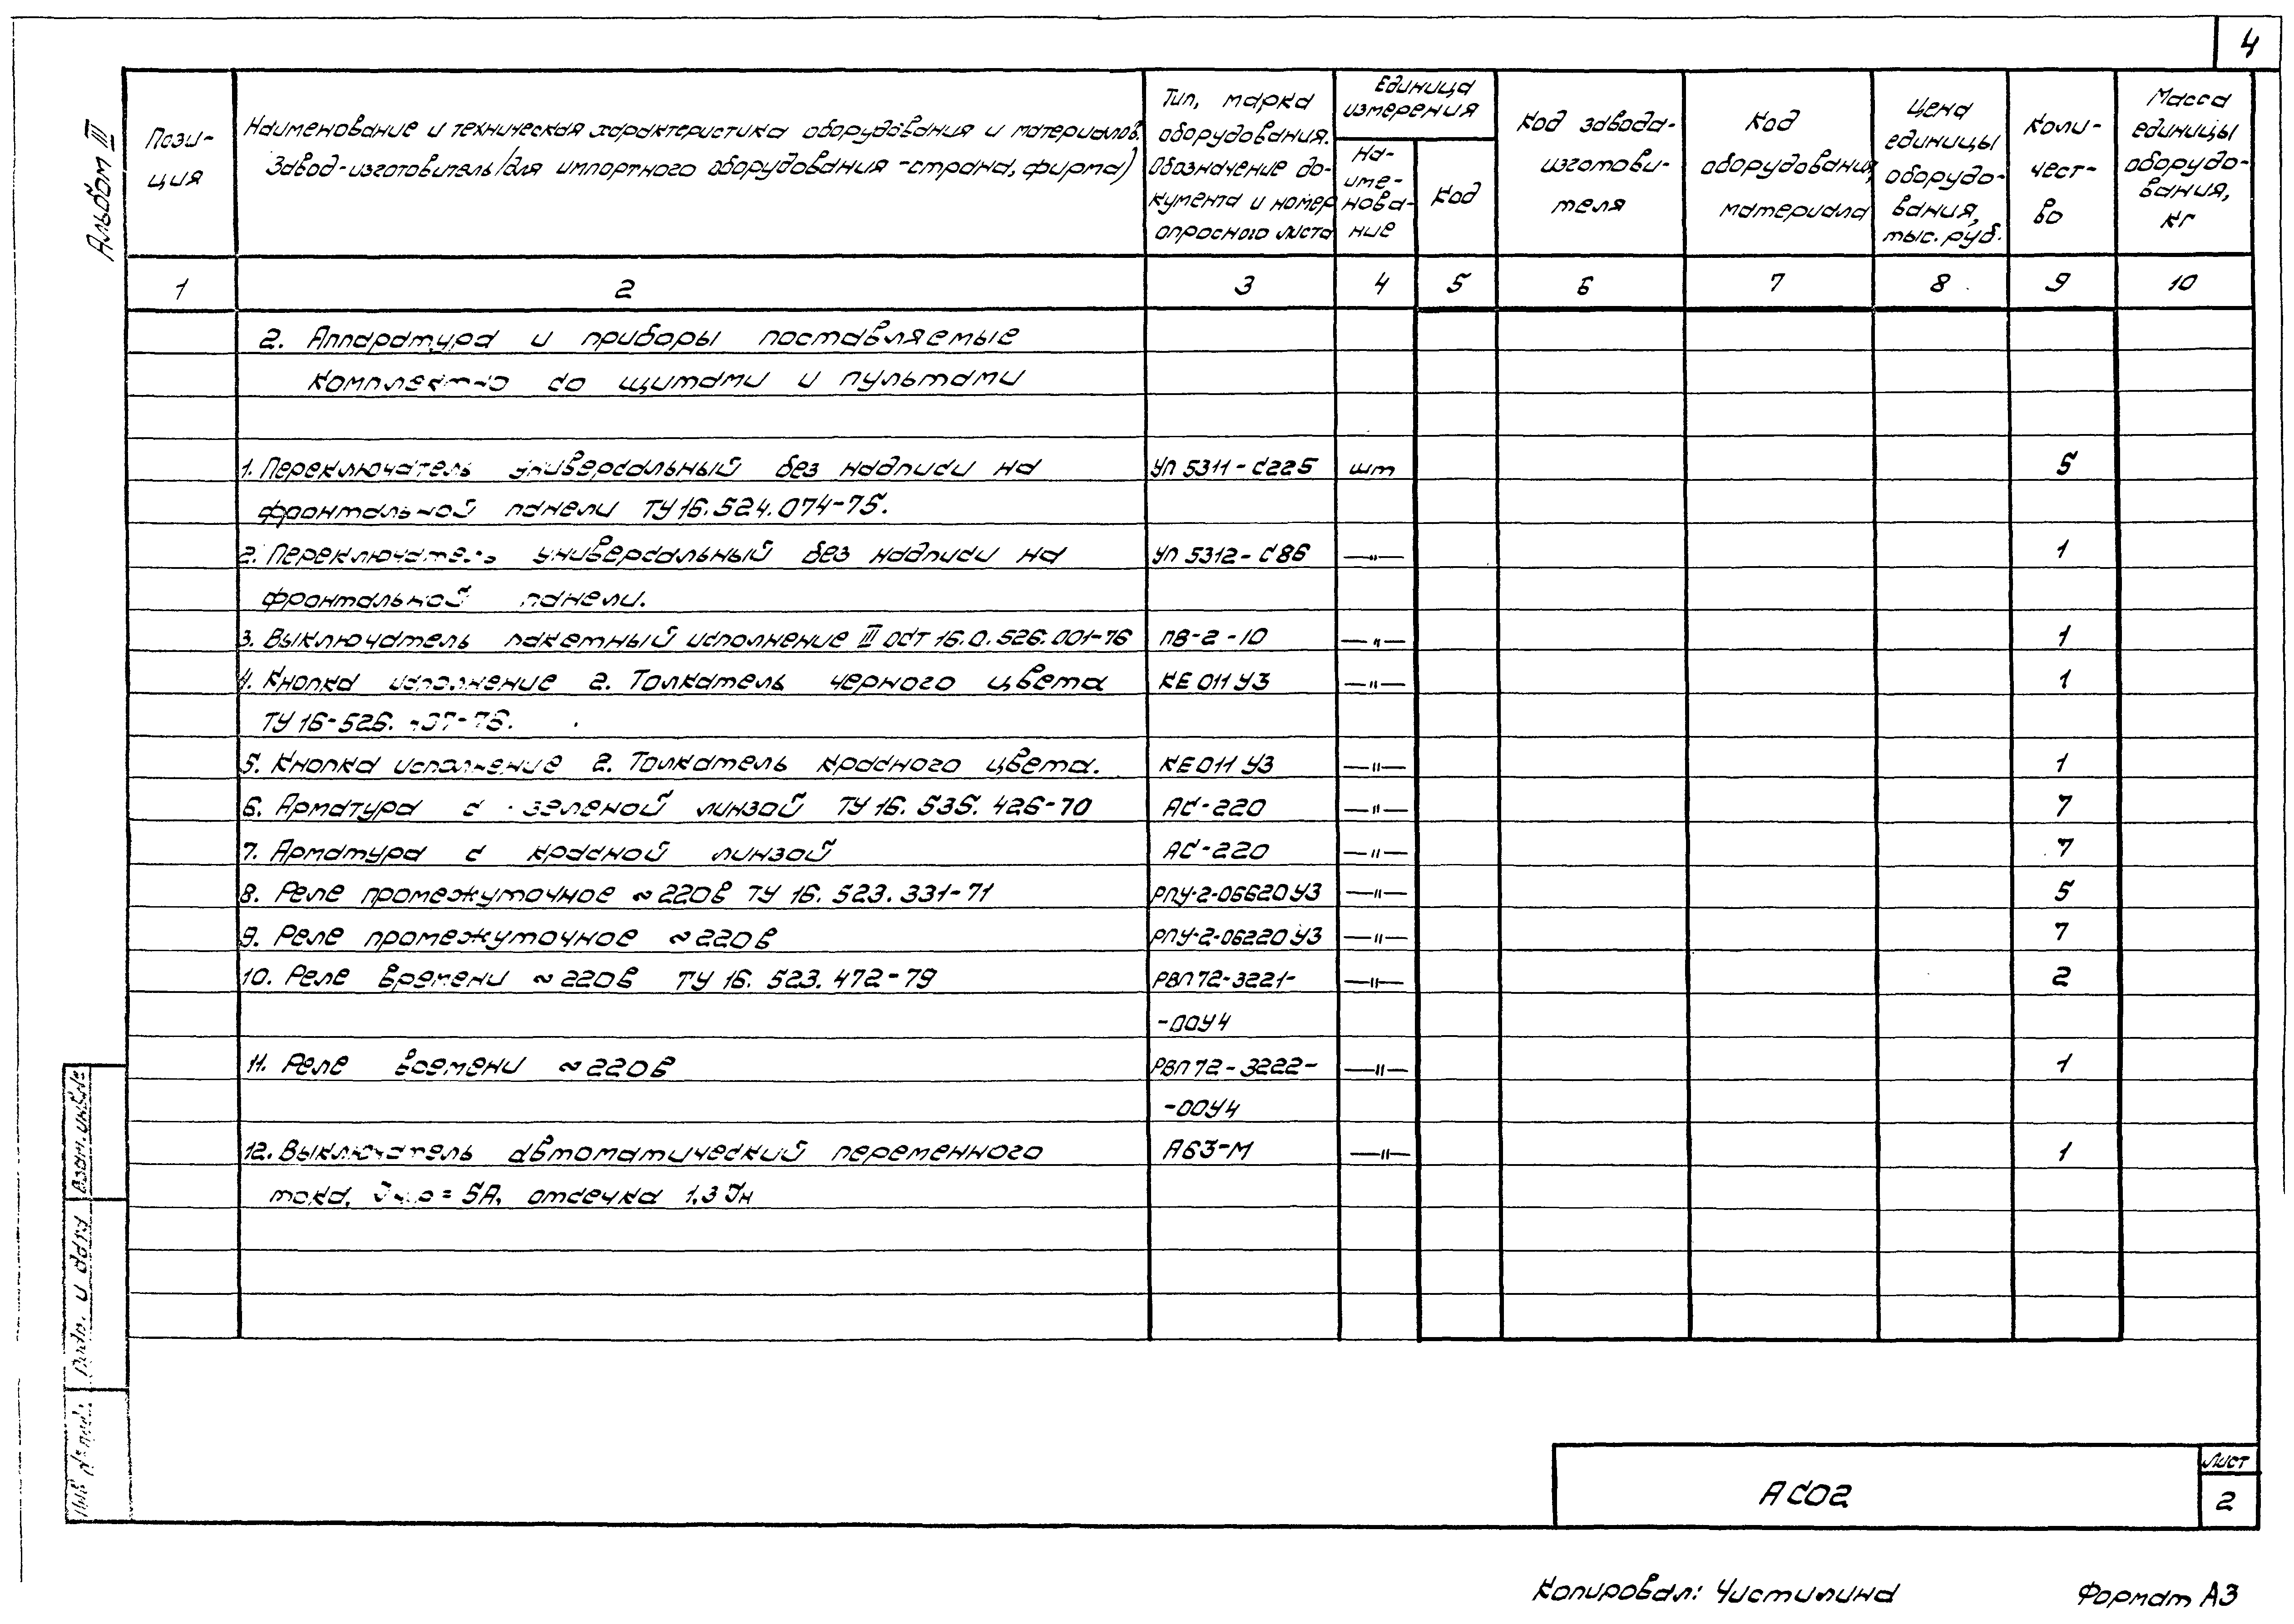 4
Альбом III
Пози-
ция
Наименование и техническая характеристика оборудования и материалов.
Завод-изготовитель/для импортного оборудования -страна, фирма)
Тип, марка
оборудования.
Обозначение до-
кумента и номер
опросного листа
Единица
измерения
На-
име-
нова-
ние
Код
Код завода-
изготови-
теля
Код
оборудования,
материала
Цена
единицы
оборудо-
вания,
тыс. руб.
Коли-
чест-
во
Масса
единицы
оборудо-
вания,
кг
1 2 3 4 5 6 7 8 9 10
2. Аппаратура и приборы поставляемые
комплектно со щитами и пультами
1. Переключатель универсальный без надписи на УП 5311-С225 шт 5
фронтальной панели ТУ 16.524.074-75.
2. Переключатель универсальный без надписи на УП 5312-С86 —"— 1
фронтальной панели.
3. Выключатель пакетный исполнение III ОСТ 16.0.526.001-76 ПВ-2-10 —"— 1
4. Кнопка исполнение 2. Толкатель черного цвета КЕ 011 У3 —"— 1
ТУ 16-526.
5. Кнопка исполнение 2. Толкатель красного цвета. КЕ 011 У3 —"— 1
6. Арматура с зеленой линзой ТУ 16.535.426-70 АС-220 —"— 7
7. Арматура с красной линзой АС-220 —"— 7
8. Реле промежуточное ~220в ТУ 16.523.331-71 РПУ-2-06620 У3 —"— 5
9. Реле промежуточное ~220в РПУ-2-06220 У3 —"— 7
10. Реле времени ~220в ТУ 16.523.472-79 РВП72-3221- —"— 2
-00У4
11. Реле времени ~220в РВП72-3222- —"— 1
-00У4
12. Выключатель автоматический переменного А63-М —"— 1
тока, = 5А, отсечка 1,3 Јн
Взам. инв. №
Подп. и дата
Инв. № подл.
АС02
Лист
2
Копировал: Чистилина
Формат А3